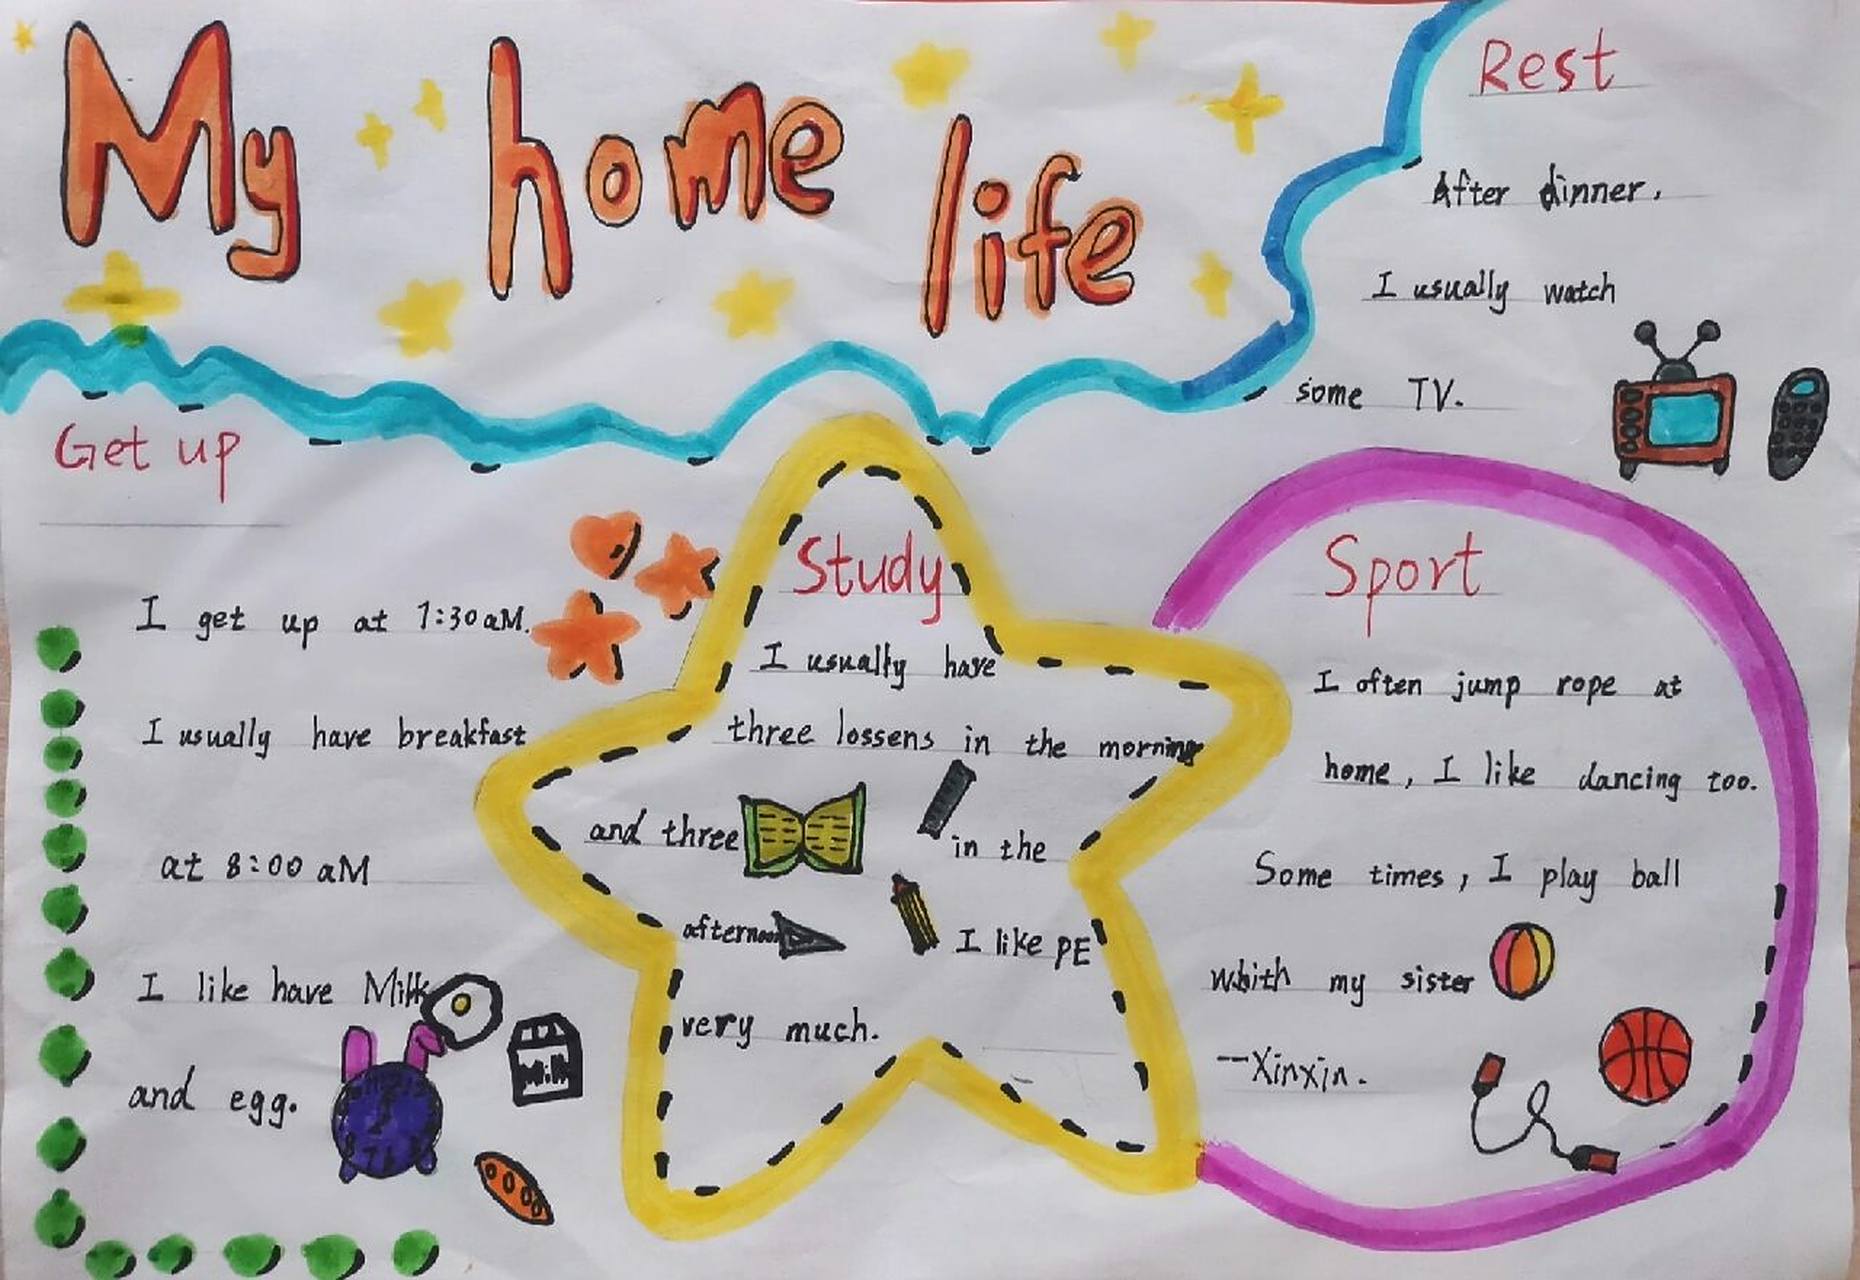 My home life
Rest
After dinner,
I usually watch
some TV.
Get up
I get up at 7:30 aM.
I usually have breakfast
at 8:00 aM
I like have Milk
and egg.
Milk
Study
I usually have
three lossens in the morning
and three in the
afternoon I like PE
very much.
Sport
I often jump rope at
home, I like dancing too.
Some times, I play ball
whith my sister
—Xinxin.